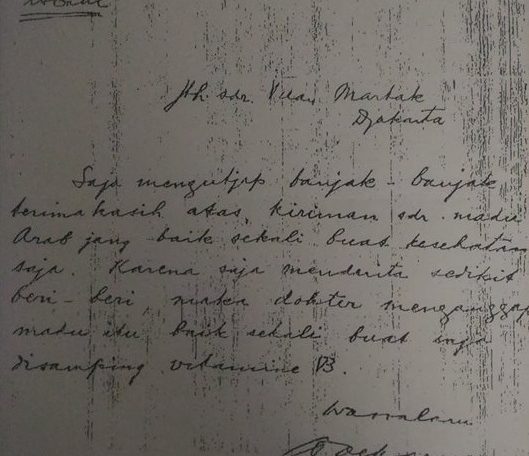 Jth. sdr. Tuan Martak
Djakarta
Saja mengutjap banjak-banjak
terima kasih atas kiriman sdr. madu
Arab jang baik sekali buat kesehatan
saja. Karena saja menderita sedikit
beri-beri, maka dokter menganggap
madu itu baik sekali buat saja
disamping vitamine B.
Wassalam